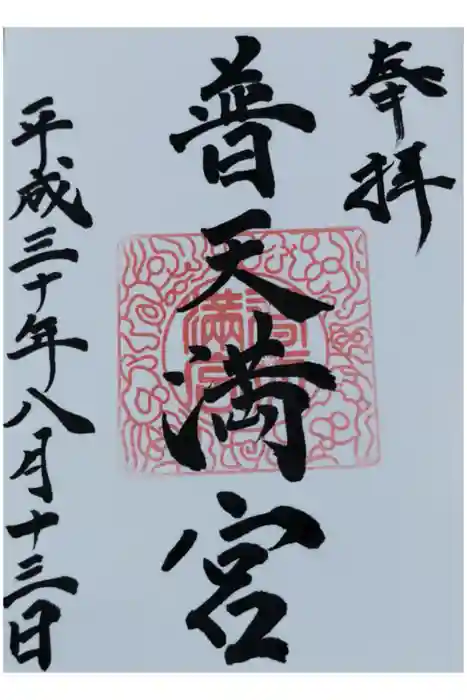 奉拝
普天満宮
平成三十年八月十三日